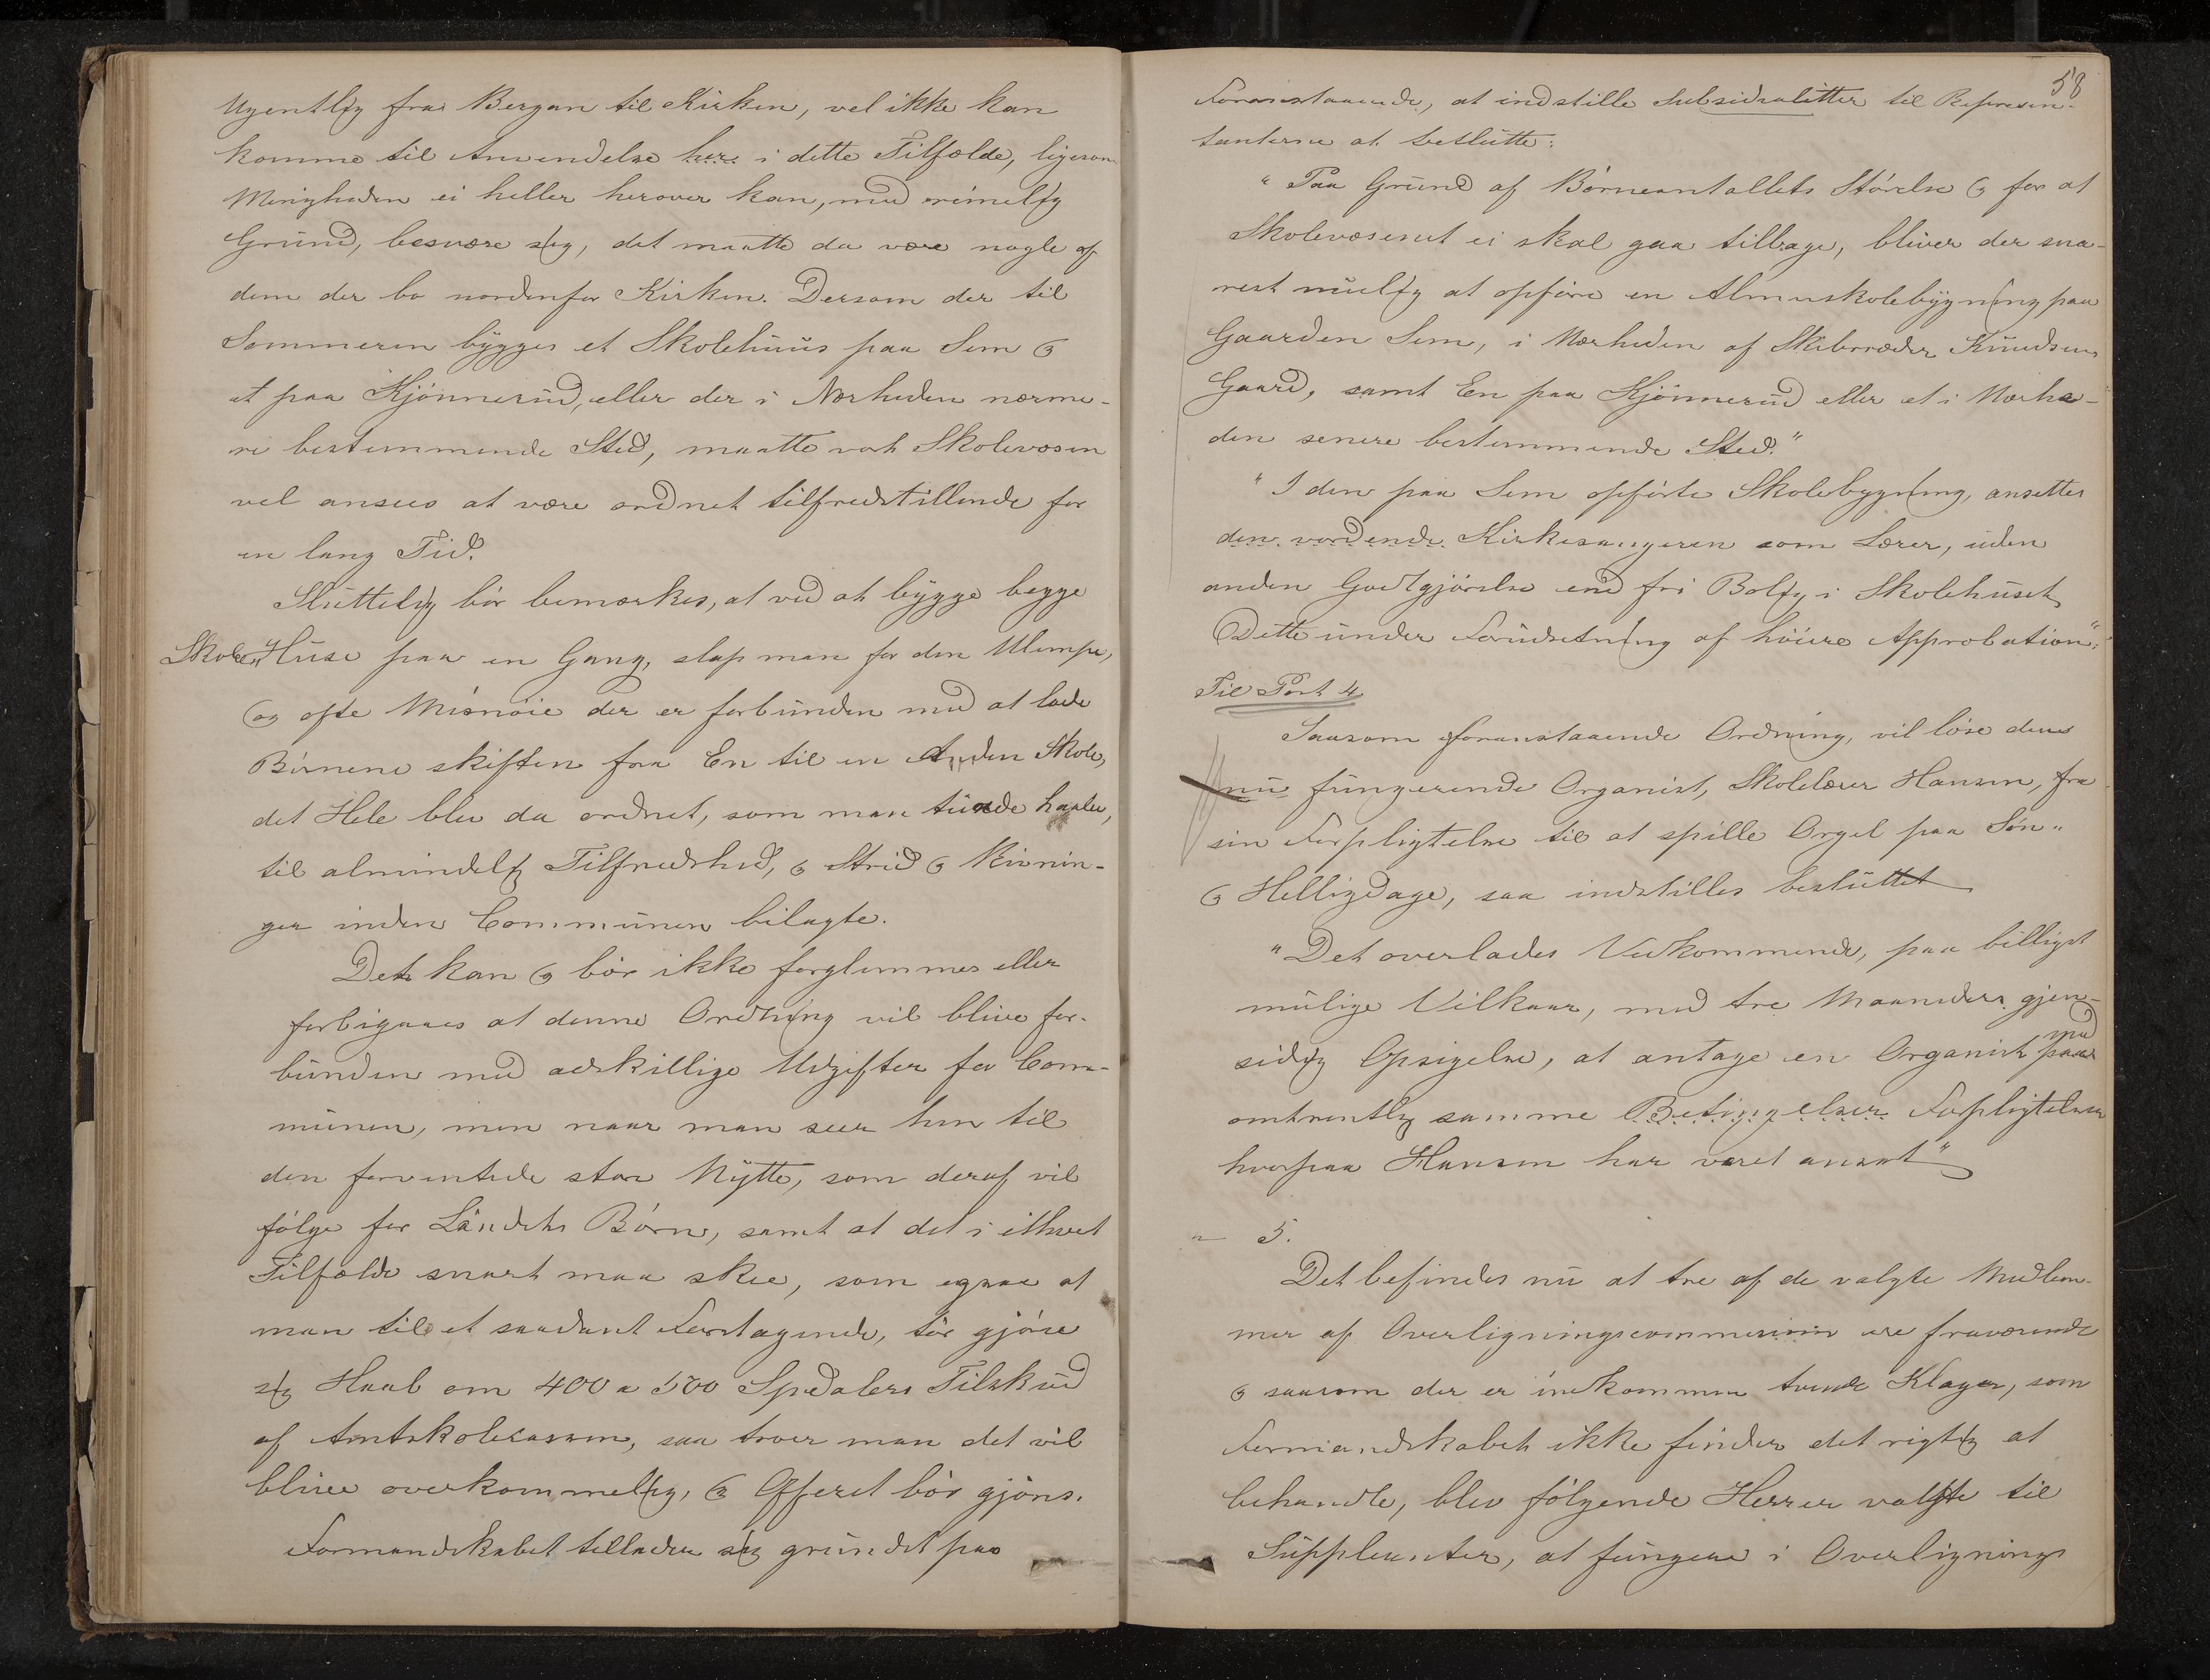 Ugentlig fra Bergan til Kirken, vel ikke kan
komme til Anvendelse her i dette Tilfælde, ligesom
Menigheden ei heller herover kan, med rimelig
Grund, besvære sig, det maatte da være nogle af
dem der bo nordenfor Kirken. Dersom der til
Sommeren bygges et Skolehuus paa Sem og
et paa Kjønnerud, eller der i Nærheden nærme-
re bestemmende Sted, maatte vort Skolevæsen
vel ansees at være ordnet tilfredstillende for
en lang Tid.
Sluttelig bør bemærkes, at ved at bygge begge
Skole Huse paa en Gang, slap man for den Ulempe,
og ofte Misnøie der er forbunden med at lade
Børnene skiften fra En til en Anden Skole,
det Hele blev da ordnet, som man turde haabe,
til almindelig Tilfredshed, og Strid og Kivnin-
ger inden Communen bilagte.
Det kan og bør ikke forglemmes eller
forbigaaes at denne Ordning vil blive for-
bunden med adskillige Udgifter for Com-
munen, men naar man seer hen til
den forventede store Nytte, som deraf vil
følge for Landets Børn, samt at det i ethvert
Tilfælde snart maa skee, som ogsaa at
man til et saadant Foretagende, tør gjøre
sig Haab om 400 a 500 Spedalers Tilskud
af Amtskolecassen, saa troer man det vil
blive overkommelig, og Offeret bør gjøres.
Formandskabet tillader sig grundet paa
58
Foranstaaende, at indstille Subsidialiter til Represen-
tanterne at beslutte:
" Paa Grund af Børneantallets Størelse og for at
Skolevæsenet ei skal gaa tilbage, bliver der sna-
rest muelig at opføre en Almuskolebygning paa
Gaarden Sem, i Nærheden af Skibsreder Knudsens
Gaard, samt En paa Kjønnerud eller et i Nærhe-
den senere bestemmende Sted."
" I den paa Sem opførte Skolebygning, ansettes
den vordende Kirkesangeren som Lærer, uden
anden Godtgjørelse end fri Bolig i Skolehuset
Dette under Forudsetning af høiere Approbation":
Til Post 4
Saasom foranstaaende Ordning, vil løse den
nu fungerende Organist, Skolelærer Hansen, fra
sin Forpligtelse til at spille Orgel paa Søn-
og Helligdage, saa indstilles besluttet
" Det overlades Vedkommende, paa billigst
mulige Vilkaar, med tre Maaneders gjen-
sidig Opsigelse, at antage en Organist med paa
omtrentlig samme Betingelser Forpligtelser
hvorpaa Hansen har været ansat"
" 5.
Det befindes nu at tre af de valgte Medlem-
mer af Overligningscommisionen ere fraværende
og saasom der er indkommen tvende Klager, som
Formandskabet ikke finder det rigtig at
behandle, blev følgende Herrer valgte til
Suppleanter, at fungere i Overlignings